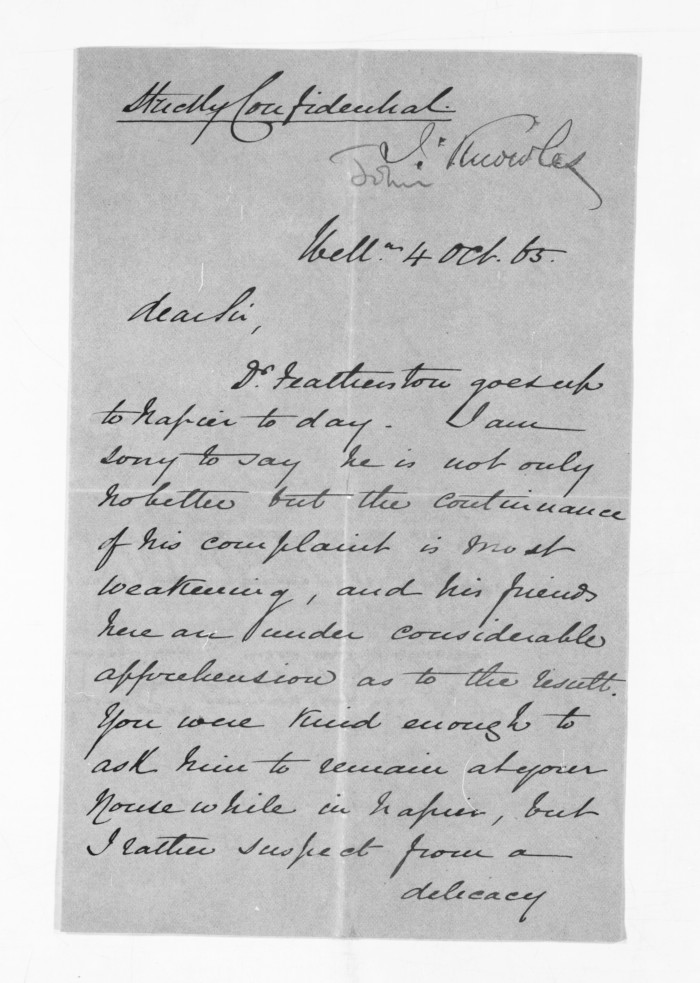 Strictly Confidential.
Jno Knowles
John
Welln. 4 Oct. 65.
dear Sir,
Dr. Featherston goes up
to Napier to day. I am
sorry to say he is not only
no better but the continuance
of his complaint is most
weakening, and his friends
here are under considerable
apprehension as to the result.
You were kind enough to
ask him to remain at your
House while in Napier, but
I rather suspect from a
delicacy